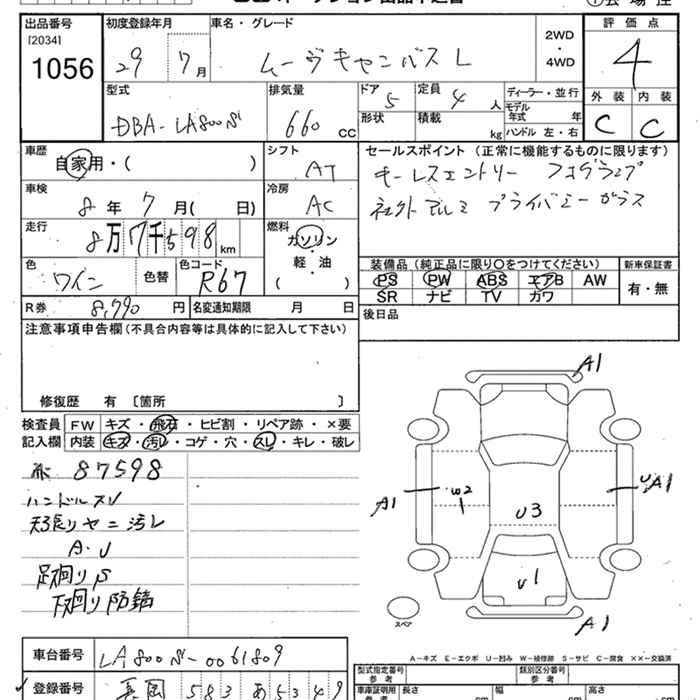 出品番号 初度登録年月 車名・グレード 評価点
[2034] 2WD
1056 29 7月 ムーヴキャンバス L ・ 4
4WD
型式 排気量 ドア 5 定員 4人 ディーラー・並行 外装 内装
DBA- 660 CC 形状 積載 kg モデル年式 年 C C
ハンドル 左・右
車歴 シフト セールスポイント (正常に機能するものに限ります)
自家用・( ) AT キーレスエントリー フォグランプ
車検 冷房 社外アルミ プライバシーガラス
8年 7月( 日) AC
走行 燃料
8万7千598km ガソリン
色 色替 色コード 軽・油 装備品 (純正品に限り○をつけてください) 新車保証書
ワイン R67 ( ) PS PW ABS エアB AW 有・無
SR ナビ TV カワ
R券 8,790円 名変通知期限 月 日 後日品
注意事項申告欄(不具合内容等は具体的に記入して下さい)
修復歴 有 [箇所 ]
検査員 FW キズ・飛石・ヒビ割・リペア跡・×要
記入欄 内装 キズ・汚レ・コゲ・穴・スレ・キレ・破レ
87598
ハンドルスレ
天張りヤニ汚レ
足廻りS
下廻り防錆
A1
A1 W2 U3 UA1
U1
A1
スペア
A-キズ E-エクボ U-凹み W-補修跡 S-サビ C-腐食 ××-交換済
車台番号 LA800S-0061809 型式指定番号 参考 類別区分番号 参考
登録番号 長岡 583 あ 5349 車庫証明用 参考 長さ cm 幅 cm 高さ cm